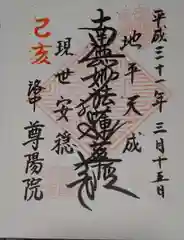 平成三十一年三月十五日
地平天成
南無妙法蓮華経
現世安穏
己亥
洛中
尊陽院